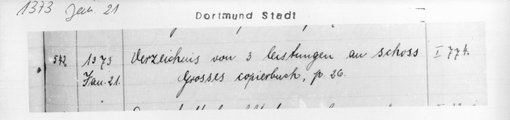 1373 Jan 21
Dortmund Stadt
542 1373 Verzeichnis von 3 leistungen an schoss I 774.
Jan. 21. Grosses copierbuch, p 26.